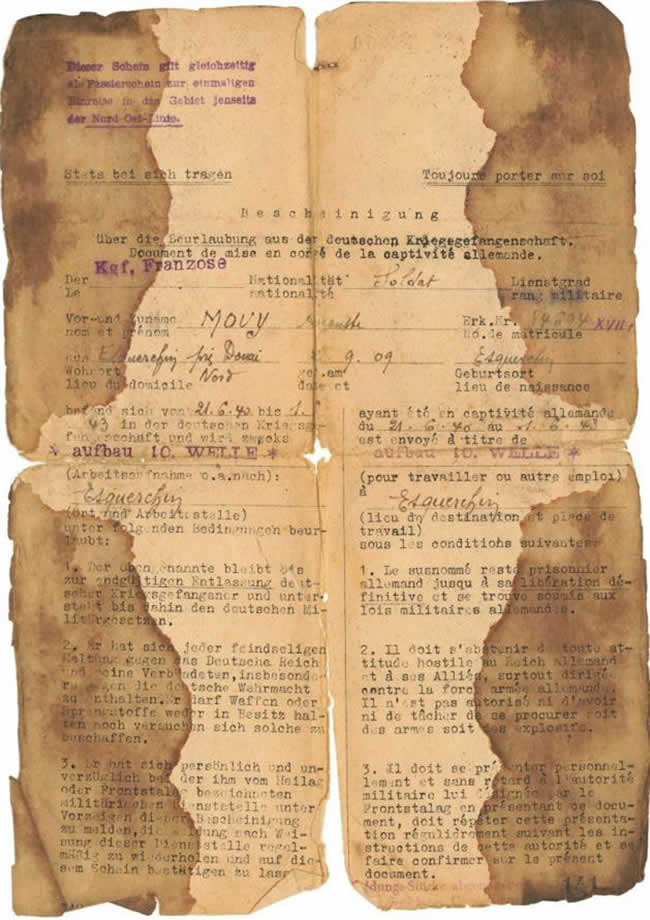 Dieser Schein gilt gleichzeitig
als Passierschein zur einmaligen
Einreise in das Gebiet jenseits
der Nord-Ost-Linie.
Stets bei sich tragen
Toujours porter sur soi
Bescheinigung
über die Beurlaubung aus der deutschen Kriegsgefangenschaft.
Document de mise en congé de la captivité allemande.
Kgf. Franzose
Der Nationalität Soldat Dienstgrad
Le nationalité rang militaire
Vor-und Zuname MOVY Erk.Nr.
nom et prénom No.de matricule
Esquerchin près Douai 9.09 Esquerchin
Wohnort Nord Geburtsort
lieu du domicile lieu de naissance
befand sich vom 21.6.40 bis 1.
43 in der deutschen Kriegsge-
fangenschaft und wird zwecks
* aufbau 10. WELLE *
(Arbeitsaufnahme o.a.nach):
Esquerchin
(Ort und Arbeitsstelle)
unter folgenden Bedingungen beur-
laubt:
1. Der Obengenannte bleibt bis
zur endgültigen Entlassung deut-
scher Kriegsgefangener und unter-
steht bis dahin den deutschen Mi-
litärgesetzen.
2. Er hat sich jeder feindseligen
Haltung gegen das Deutsche Reich
und seine Verbündeten, insbesonde-
re gegen die deutsche Wehrmacht
zu enthalten. Er darf Waffen oder
Sprengstoffe weder in Besitz hal-
ten noch versuchen sich solche zu
beschaffen.
3. Er hat sich persönlich und un-
verzüglich bei der ihm vom Heilag
oder Frontstalag bezeichneten
militärischen Dienststelle unter
Vorzeigen dieser Bescheinigung
zu melden, die Meldung nach Wei-
sung dieser Dienststelle regel-
mäßig zu wiederholen und auf die-
sem Schein bestätigen zu lass
ayant été en captivité allemande
du 21.6.40 au 1.6.43
est envoyé à titre de
aufbau 10. WELLE *
(pour travailler ou autre emploi)
à
Esquerchin
(lieu de destination et place de
travail)
sous les conditions suivantes:
1. Le susnommé reste prisonnier
allemand jusqu à sa libération dé-
finitive et se trouve soumis aux
lois militaires allemandes.
2. Il doit s'abstenir de toute at-
titude hostile au Reich allemand
et à ses Alliés, surtout dirigé
contre la force armée allemande.
Il n'est pas autorisé ni d'avoir
ni de tâcher de se procurer soit
des armes soit des explosifs.
3. Il doit se présenter personnel-
lement et sans retard à l'autorité
militaire lui désignée par le
Frontstalag en présentant ce docu-
ment, doit répéter cette présenta-
tion régulièrement suivant les in-
structions de cette autorité et se
faire confirmer sur le présent
document.